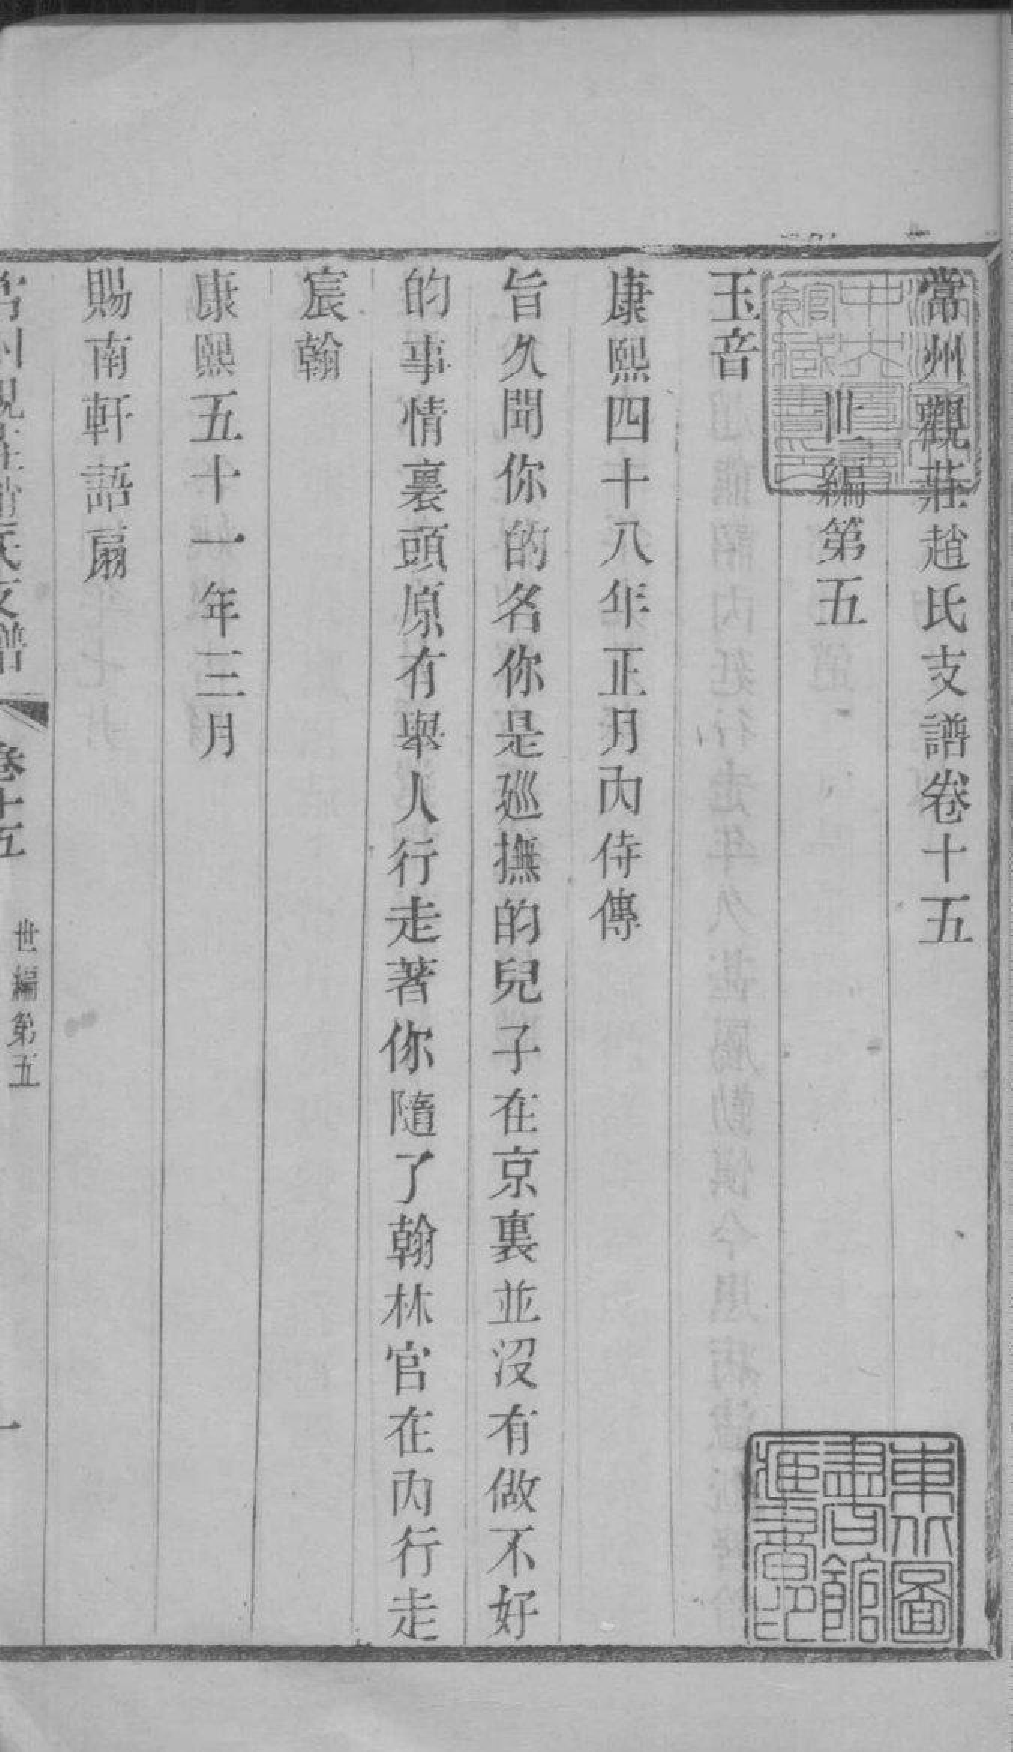 常州觀莊趙氏支譜卷十五
世編第五
玉音
康熙四十八年正月內侍傳
旨久聞你的名你是廵撫的兒子在京裏並沒有做不好
的事情裏頭原有舉人行走著你隨了翰林官在內行走
宸翰
康熙五十一年三月
賜南軒語扇
常州觀莊趙氏支譜
卷十五
世編第五
一